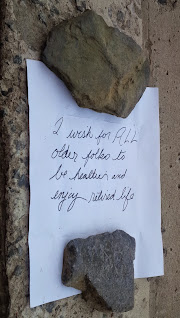 I wish for ALL
older folks to
be healthier and
enjoy retired life